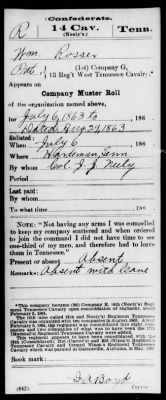 Confederate.
R 14 Cav. Tenn.
(Neely's.)
Wm. Rosser
Pvt., (1st) Company G,
13 Reg't West Tennessee Cavalry.*
Appears on
Company Muster Roll
of the organization named above,
for July 6, 1863 to
Dated Aug 29, 1863 186 .
Enlisted:
When July 6 , 186 .
Where Hardeman, Tenn
By whom Col. J. J. Neely
Period
Last paid:
By whom
To what time , 186 .
NOTE: "Not having any arms I was compelled
to keep my company scattered and when ordered
to join the command I did not have time to see
one-third of my men, and therefore had to leave
them in Tennessee."
Present or absent Absent
Remarks: Absent with leave
*This company became (2d) Company E, 14th (Neely's) Regi-
Book mark:
J. A. Boyd
(642) Copyist.